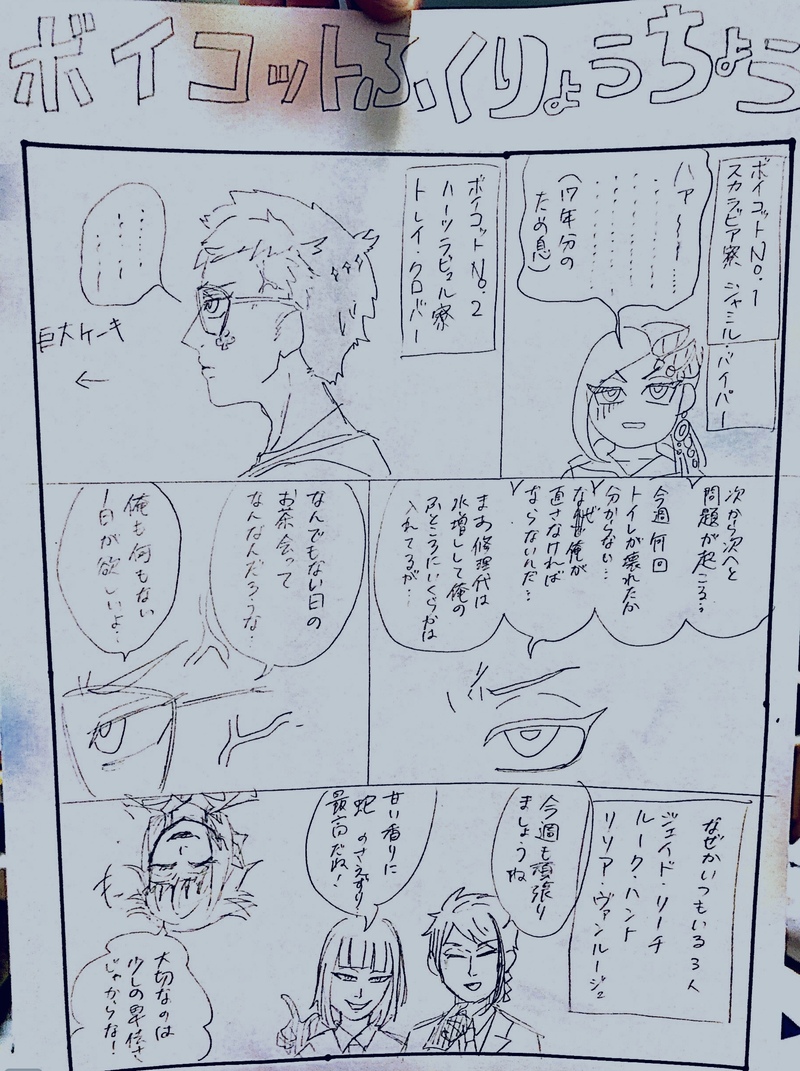 ボイコットふくりょうちょう
ボイコットNo.1
スカラビア寮 ジャミル・バイパー
ハァ〜〜……
………………
………………
(17年分の
ため息)
ボイコットNo.2
ハーツラビュル寮
トレイ・クローバー
……
……
巨大ケーキ
←
次から次へと
問題が起こる…
今週何回
トイレが壊れたか
分からない…
なぜ俺が
直さなければ
ならないんだ…
まあ修理代は
水増しして俺の
ふところにいくらかは
入れてるが…
なんでもない日の
お茶会って
なんなんだろうな…
俺も何もない
1日が欲しいよ…
なぜかいつもいる3人
ジェイド・リーチ
ルーク・ハント
リリア・ヴァンルージュ
今週も頑張り
ましょうね
甘い香りに
蛇のさえずり
最高だね!
大切なのは
少しの卑怯さ
じゃからな!